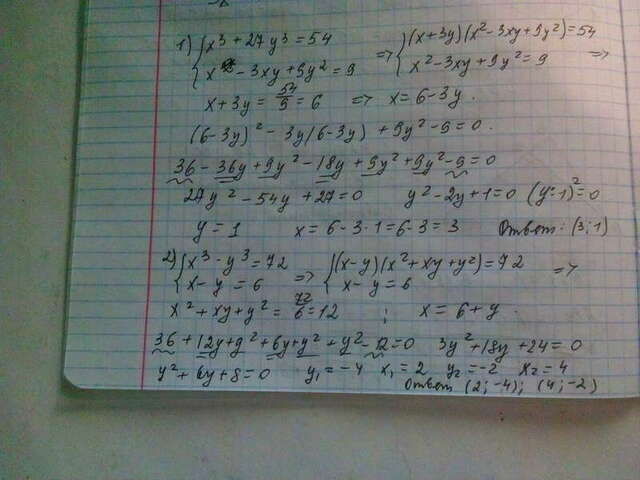 1) { x³ + 27y³ = 54 => { (x+3y)(x² - 3xy + 9y²) = 54 =>
x² - 3xy + 9y² = 9 x² - 3xy + 9y² = 9
x + 3y = 54/9 = 6 => x = 6 - 3y.
(6-3y)² - 3y(6-3y) + 9y² - 9 = 0.
36 - 36y + 9y² - 18y + 9y² + 9y² - 9 = 0
27y² - 54y + 27 = 0 y² - 2y + 1 = 0 (y-1)² = 0
y = 1 x = 6 - 3·1 = 6 - 3 = 3 Ответ: (3; 1)
2) { x³ - y³ = 72 => { (x-y)(x² + xy + y²) = 72 =>
x - y = 6 x - y = 6
x² + xy + y² = 72/6 = 12 ; x = 6 + y.
36 + 12y + y² + 6y + y² + y² - 12 = 0 3y² + 18y + 24 = 0
y² + 6y + 8 = 0 y₁ = -4 x₁ = 2 y₂ = -2 x₂ = 4
Ответ (2; -4); (4; -2)